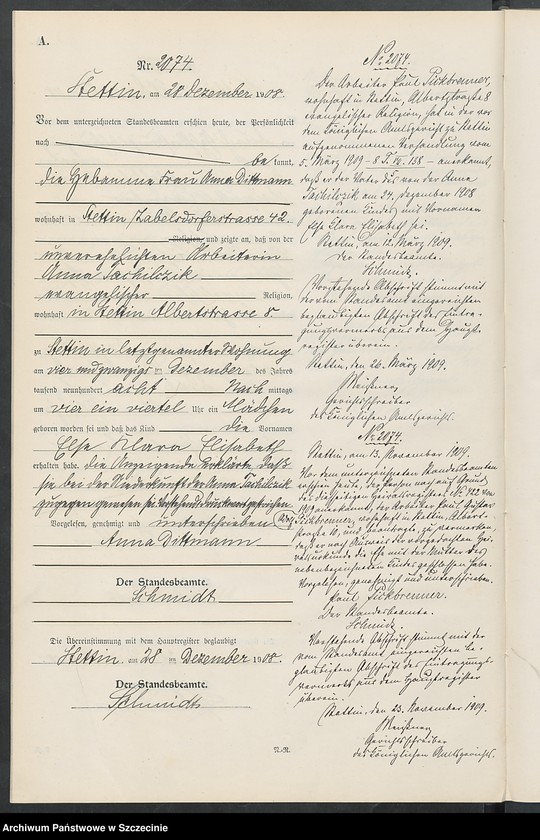 A.
Nr. 2074.
Stettin, am 28 Dezember 1908.
Vor dem unterzeichneten Standesbeamten erschien heute, der Persönlichkeit
nach
bekannt,
die Hebamme Frau Anna Dittmann
wohnhaft in Stettin Zabelsdorferstrasse 42.
Religion, und zeigte an, daß von der
unverehelichten Arbeiterin
Anna
evangelischer Religion,
wohnhaft in Stettin Albertstrasse 8
zu Stettin in letztgenannter Wohnung
am vier und zwanzigsten Dezember des Jahres
tausend neunhundert acht Nachmittags
um vier ein viertel Uhr ein Mädchen
geboren worden sei und daß das Kind die Vornamen
Else Klara Elisabeth
erhalten habe. Die Anzeigende erklärte, daß
sie bei der Niederkunft der Anna
zugegen gewesen sei. Vorstehend Druckworte gestrichen.
Vorgelesen, genehmigt und unterschrieben
Anna Dittmann
Der Standesbeamte.
Schmidt
Die Übereinstimmung mit dem Hauptregister beglaubigt
Stettin, am 28 ten Dezember 1908.
Der Standesbeamte.
Schmidt
N.-R.
No 2074.
Der Arbeiter Paul Pickbrenner,
wohnhaft in Stettin, Albertstraße 8
evangelischer Religion, hat in der vor
dem Königlichen Amtsgericht zu Stettin
aufgenommenen Verhandlung vom
5. März 1909 - 138 - anerkannt,
daß er der Vater des von der Anna
am 24. Dezember 1908
geborenen Kindes mit Vornamen
Else Klara Elisabeth sei.
Stettin, am 12. März 1909.
Der Standesbeamte.
Schmidt.
Vorstehende Abschrift stimmt mit
der vom Standesamt eingereichten
beglaubigten Abschrift des Eintra-
gungsvermerks aus dem Haupt-
register überein.
Stettin, den 26. März 1909.
Gerichtsschreiber
des Königlichen Amtsgerichts.
No 2074.
Stettin, am 13. November 1909.
Vor dem unterzeichneten Standesbeamten
erschien heute, der Person nach auf Grund
des diesseitigen Heiratsregisters No 922 von
1909 anerkannt, der Arbeiter Paul Gustav
Pickbrenner, wohnhaft in Stettin, Albert-
straße 10, und beantragte, zu vermerken,
daß er nach Ausweis der vorgelegten Hei-
ratsurkunde die Ehe mit der Mutter des
nebenbezeichneten Kindes geschlossen habe.
Vorgelesen, genehmigt und unterschrieben.
Paul Pickbrenner.
Der Standesbeamte.
Schmidt.
Vorstehende Abschrift stimmt mit der
vom Standesamt eingereichten be-
glaubigten Abschrift des Eintragungs-
vermerks aus dem Hauptregister
überein.
Stettin, den 23. November 1909.
Gerichtsschreiber
des Königlichen Amtsgerichts.
Archiwum Państwowe w Szczecinie